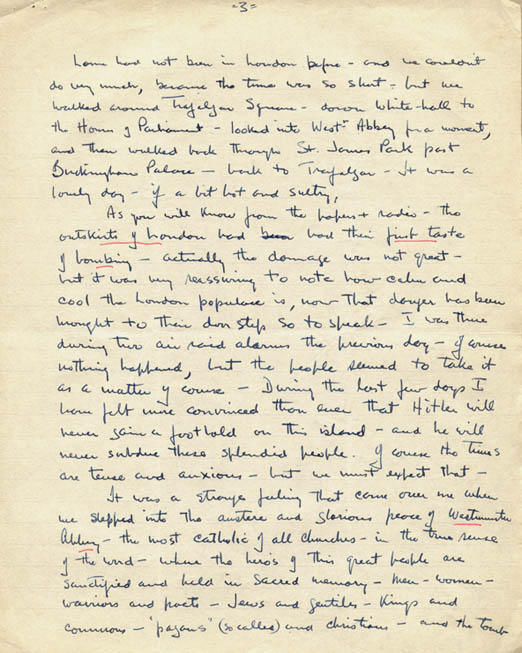 -3-
had not been in London before - and we couldn't
do very much, because the time was so short - but we
walked around Trafalgar Square - down White-hall to
the Houses of Parliament - looked into West^n Abbey for a moment,
and then walked back through St. James Park past
Buckingham Palace - back to Trafalgar - It was a
lovely day - if a bit hot and sultry,
As you will know from the papers + radio - the
outskirts of London had had their first taste
of bombing - actually the damage was not great -
but it was very reassuring to note how calm and
cool the London populace is, now that danger has been
brought to their door step so to speak - I was there
during two air raid alarms the previous day - of course
nothing happened, but the people seemed to take it
as a matter of course - During the last few days I
have felt more convinced than ever that Hitler will
never gain a foothold on this island - and he will
never subdue these splendid people. Of course the times
are tense and anxious - but we must expect that -
It was a strange feeling that came over me when
we stepped into the austere and glorious peace of Westminster
Abbey - the most catholic of all churches - in the true sense
of the word - where the hero's of this great people are
sanctified and held in sacred memory - men - women -
warriors and poets - Jews and gentiles - Kings and
commons - "pagans" (so called) and christians - and the tomb